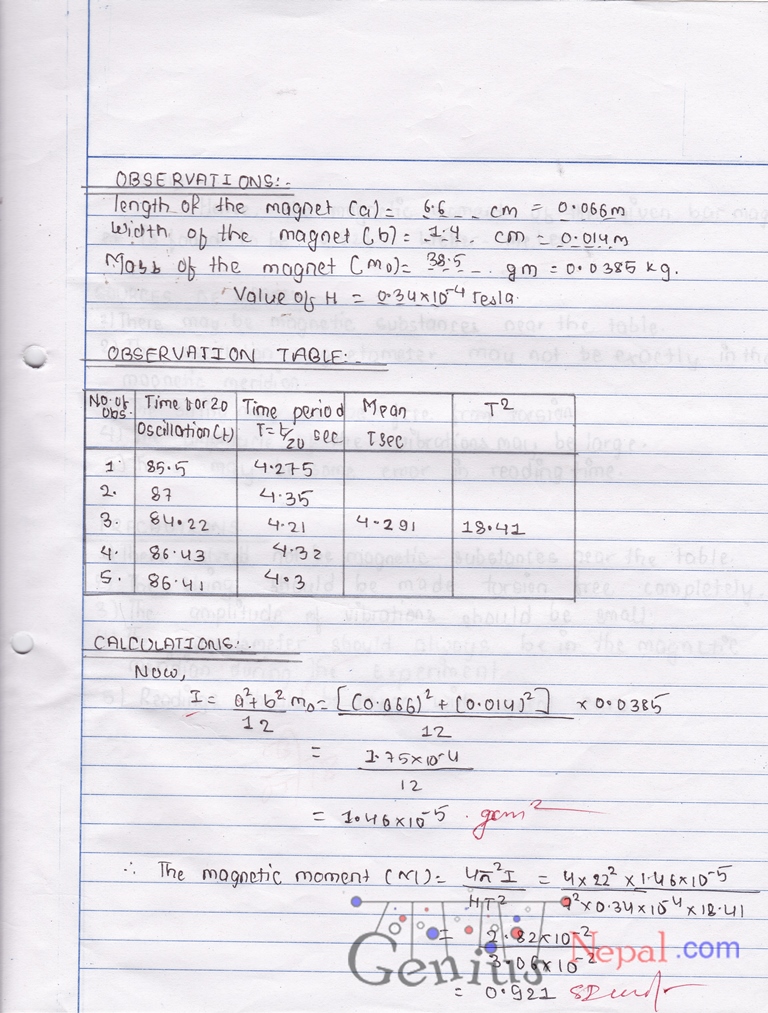 OBSERVATIONS:-
length of the magnet (a) = 6.6 cm = 0.066m
width of the magnet (b) = 1.4 cm = 0.014m
Mass of the magnet (m0) = 38.5 gm = 0.0385 kg.
Value of H = 0.34×10-4 Tesla.
OBSERVATION TABLE:-
No. of obs. Time for 20 Oscillation (t) Time period T=t/20 sec Mean T sec T2
1. 85.5 4.275
2. 87 4.35
3. 84.22 4.21 4.291 18.41
4. 86.43 4.32
5. 86.41 4.3
CALCULATIONS:-
Now,
I = a2+b2/12 m0 = [(0.066)2+(0.014)2]/12 × 0.0385
= 1.75×10-4/12
= 1.46×10-5 . gcm2
∴ The magnetic moment (M) = 4π2I/HT2 = 4×222×1.46×10-5/72×0.34×10-4×18.41
= 2.82×10-2/3.06×10-2
= 0.921
Genius Nepal.com